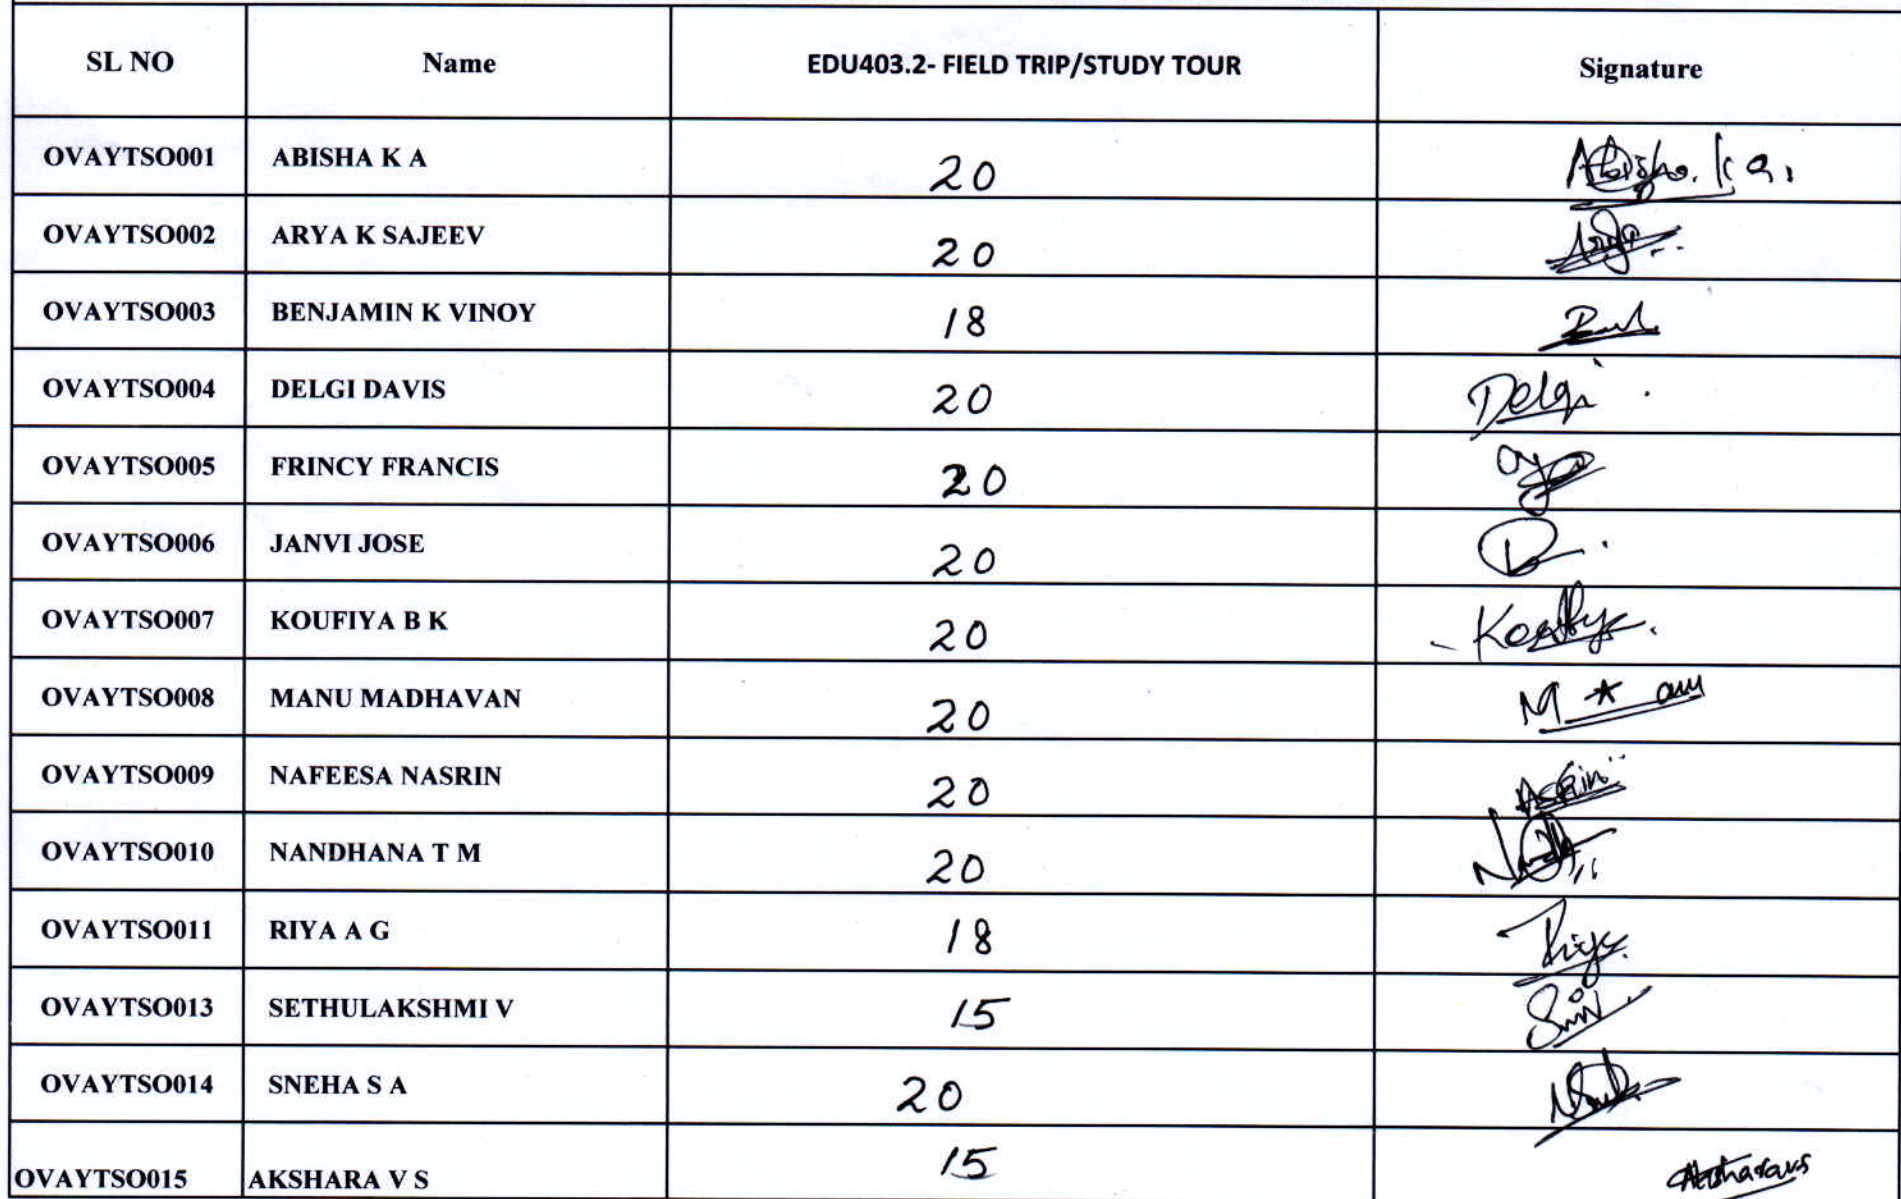 SL NO Name EDU403.2- FIELD TRIP/STUDY TOUR Signature
OVAYTSO001 ABISHA K A 20 Abisha. K a.
OVAYTSO002 ARYA K SAJEEV 20
OVAYTSO003 BENJAMIN K VINOY 18
OVAYTSO004 DELGI DAVIS 20 Delgi
OVAYTSO005 FRINCY FRANCIS 20
OVAYTSO006 JANVI JOSE 20
OVAYTSO007 KOUFIYA B K 20
OVAYTSO008 MANU MADHAVAN 20
OVAYTSO009 NAFEESA NASRIN 20
OVAYTSO010 NANDHANA T M 20
OVAYTSO011 RIYA A G 18 Riya
OVAYTSO013 SETHULAKSHMI V 15
OVAYTSO014 SNEHA S A 20
OVAYTSO015 AKSHARA V S 15